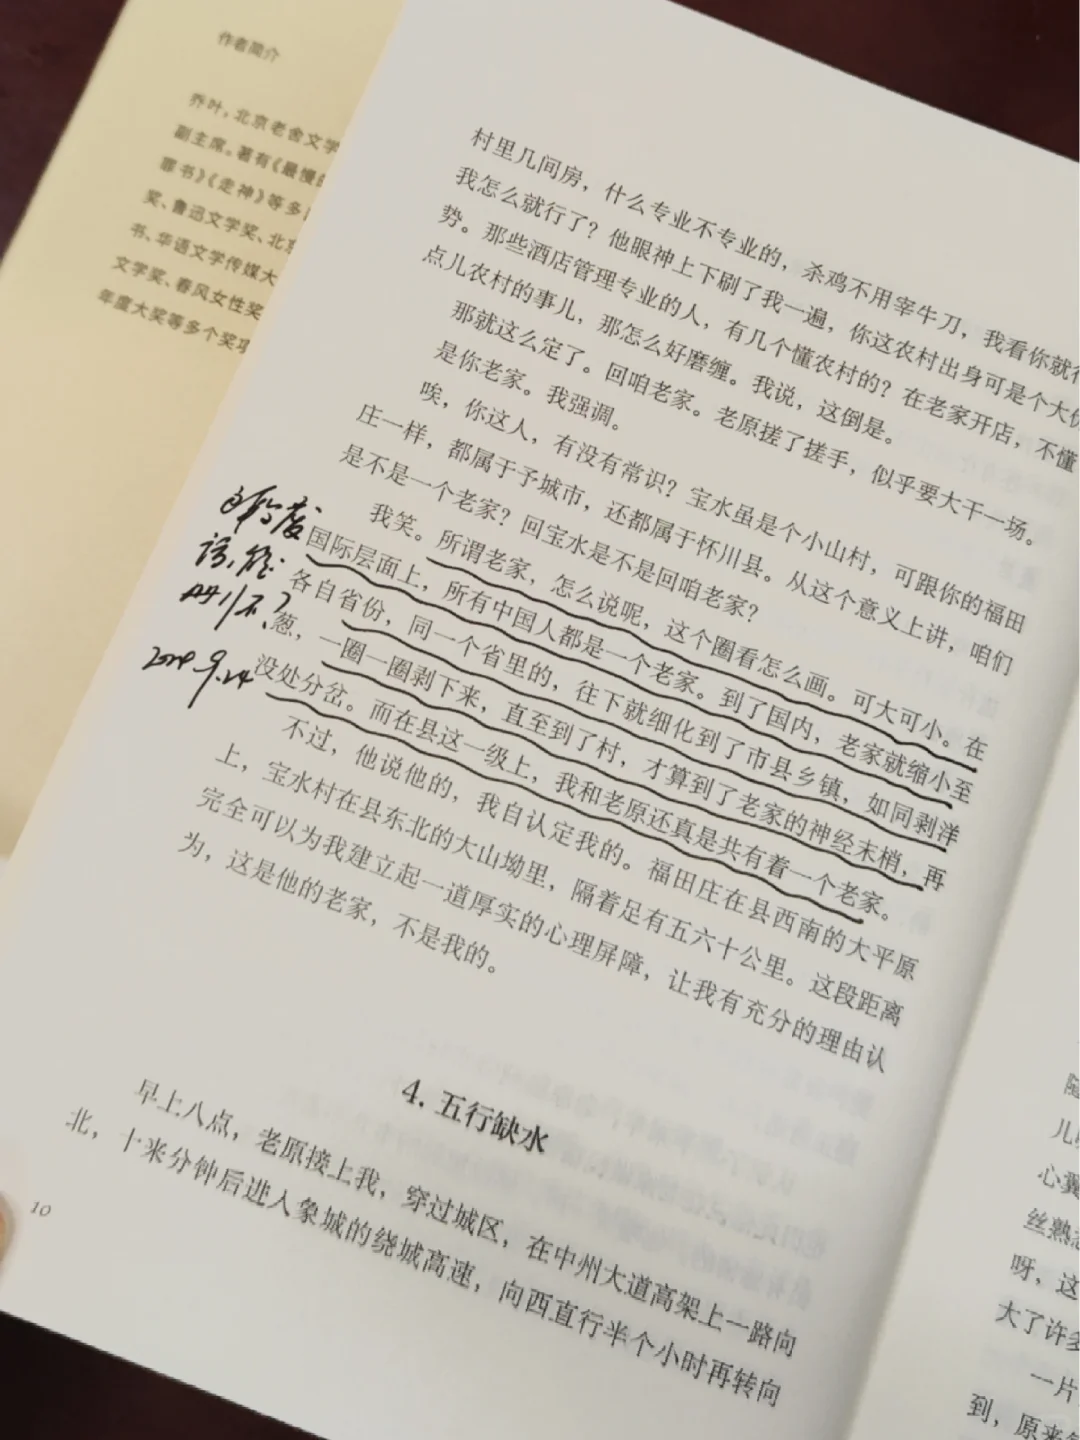 作者简介
乔叶，北京老舍文学
副主席。著有《最慢的
罪书》《走神》等多
奖、鲁迅文学奖、北京
书、华语文学传媒大
文学奖、春风女性奖
年度大奖等多个奖项
村里几间房，什么专业不专业的，杀鸡不用宰牛刀，我看你就行
我怎么就行了？他眼神上下刷了我一遍，你这农村出身可是个大优
势。那些酒店管理专业的人，有几个懂农村的？在老家开店，不懂
点儿农村的事儿，那怎么好磨缠。我说，这倒是。
那就这么定了。回咱老家。老原搓了搓手，似乎要大干一场。
是你老家。我强调。
唉，你这人，有没有常识？宝水虽是个小山村，可跟你的福田
庄一样，都属于予城市，还都属于怀川县。从这个意义上讲，咱们
是不是一个老家？回宝水是不是回咱老家？
我笑。所谓老家，怎么说呢，这个圈看怎么画。可大可小。在
国际层面上，所有中国人都是一个老家。到了国内，老家就缩小至
各自省份，同一个省里的，往下就细化到了市县乡镇，如同剥洋
葱，一圈一圈剥下来，直至到了村，才算到了老家的神经末梢，再
没处分岔。而在县这一级上，我和老原还真是共有着一个老家。
不过，他说他的，我自认定我的。福田庄在县西南的大平原
上，宝水村在县东北的大山坳里，隔着足有五六十公里。这段距离
完全可以为我建立起一道厚实的心理屏障，让我有充分的理由认
为，这是他的老家，不是我的。
4. 五行缺水
早上八点，老原接上我，穿过城区，在中州大道高架上一路向
北，十来分钟后进入象城的绕城高速，向西直行半个小时再转向
10
心翼
丝熟
呀，这
大了许多
一片
到，原来